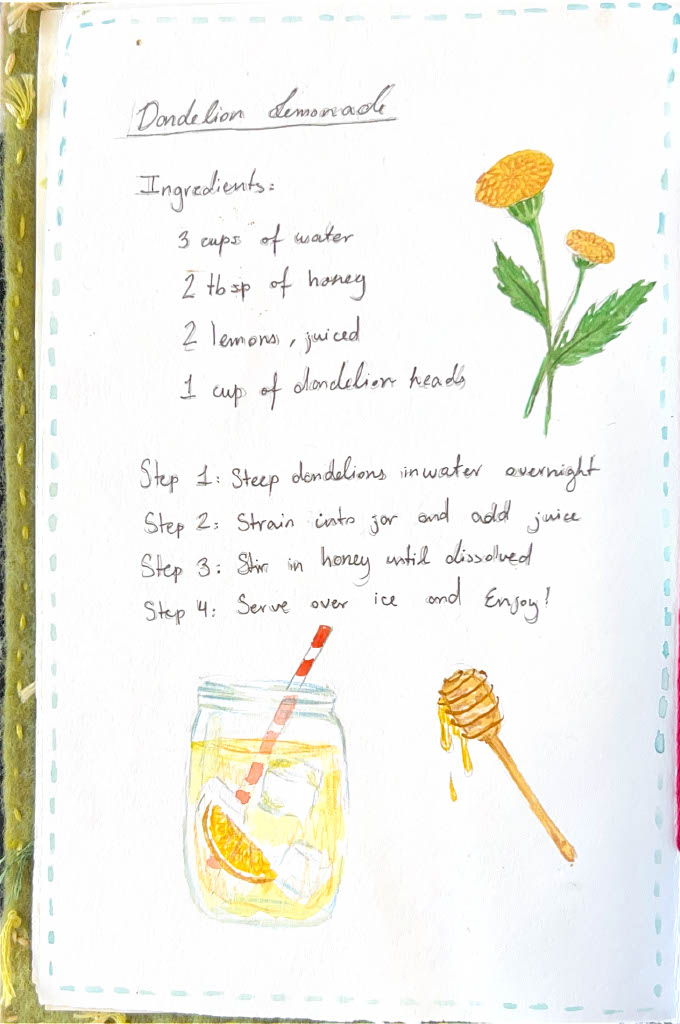 Dandelion Lemonade
Ingredients:
3 cups of water
2 tbsp of honey
2 lemons, juiced
1 cup of dandelion heads
Step 1: Steep dandelions in water overnight
Step 2: Strain into jar and add juice
Step 3: Stir in honey until dissolved
Step 4: Serve over ice and Enjoy!